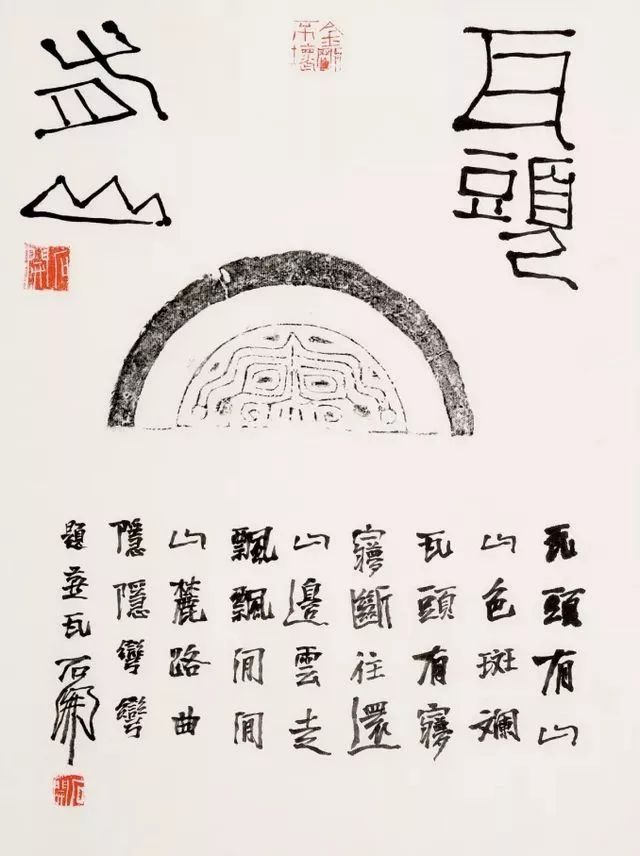 瓦頭
有山
金剛不壞
石開
瓦頭有山
山色斑斕
瓦頭有㝱
㝱斷往還
山邊雲走
飄飄閒閒
山麓路曲
隱隱彎彎
題燕瓦石開
石開